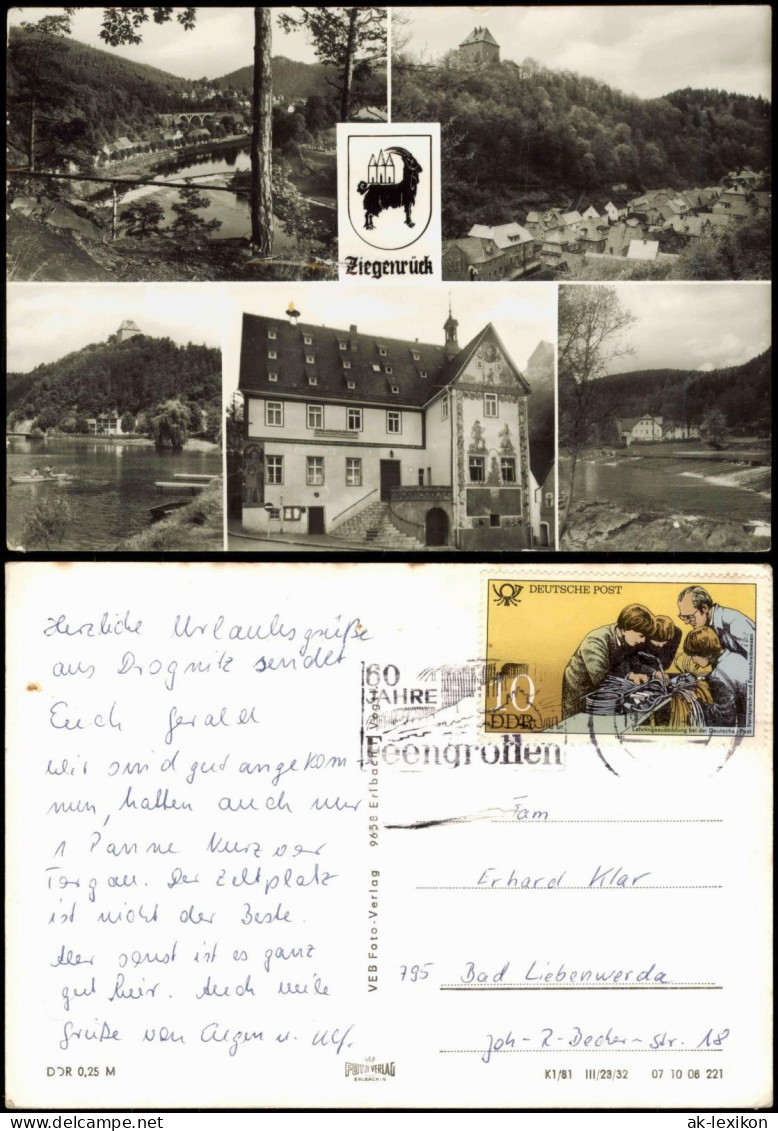 Ziegenrück
Herzliche Urlaubsgrüße
aus Drognitz sendet
Euch Gerald
Wir sind gut angekom-
men, hatten auch nur
1 Panne kurz vor
Torgau. Der Zeltplatz
ist nicht der Beste.
Aber sonst ist es ganz
gut hier. Auch viele
Grüße von u. Ulf.
DDR 0,25 M
VEB Foto-Verlag 9658 Erlbach Vogtl
VEB
FOTO VERLAG
ERLBACH/V.
DEUTSCHE POST
10
DDR
Lehrlingsausbildung bei der Deutschen Post
Fernsprech- und Fernschreibwesen
60
JAHRE
Feengrotten
Fam
Erhard Klar
795 Bad Liebenwerda
Joh-R-Becher-Str. 18
K1/81 III/23/32 07 10 06 221
ak-lexikon.com